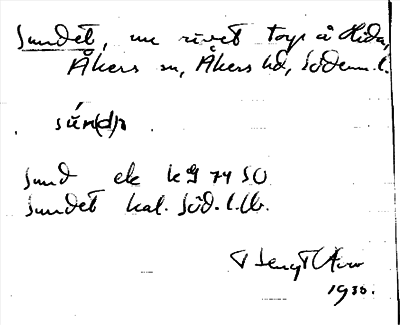 Sundet, nu rivet torp å Hida,
Åkers sn, Åkers hd, Söderm. l.
sún(d)
Sund ek kg 74 SO
Sundet kal. Söd. l.
Bengt
1930.